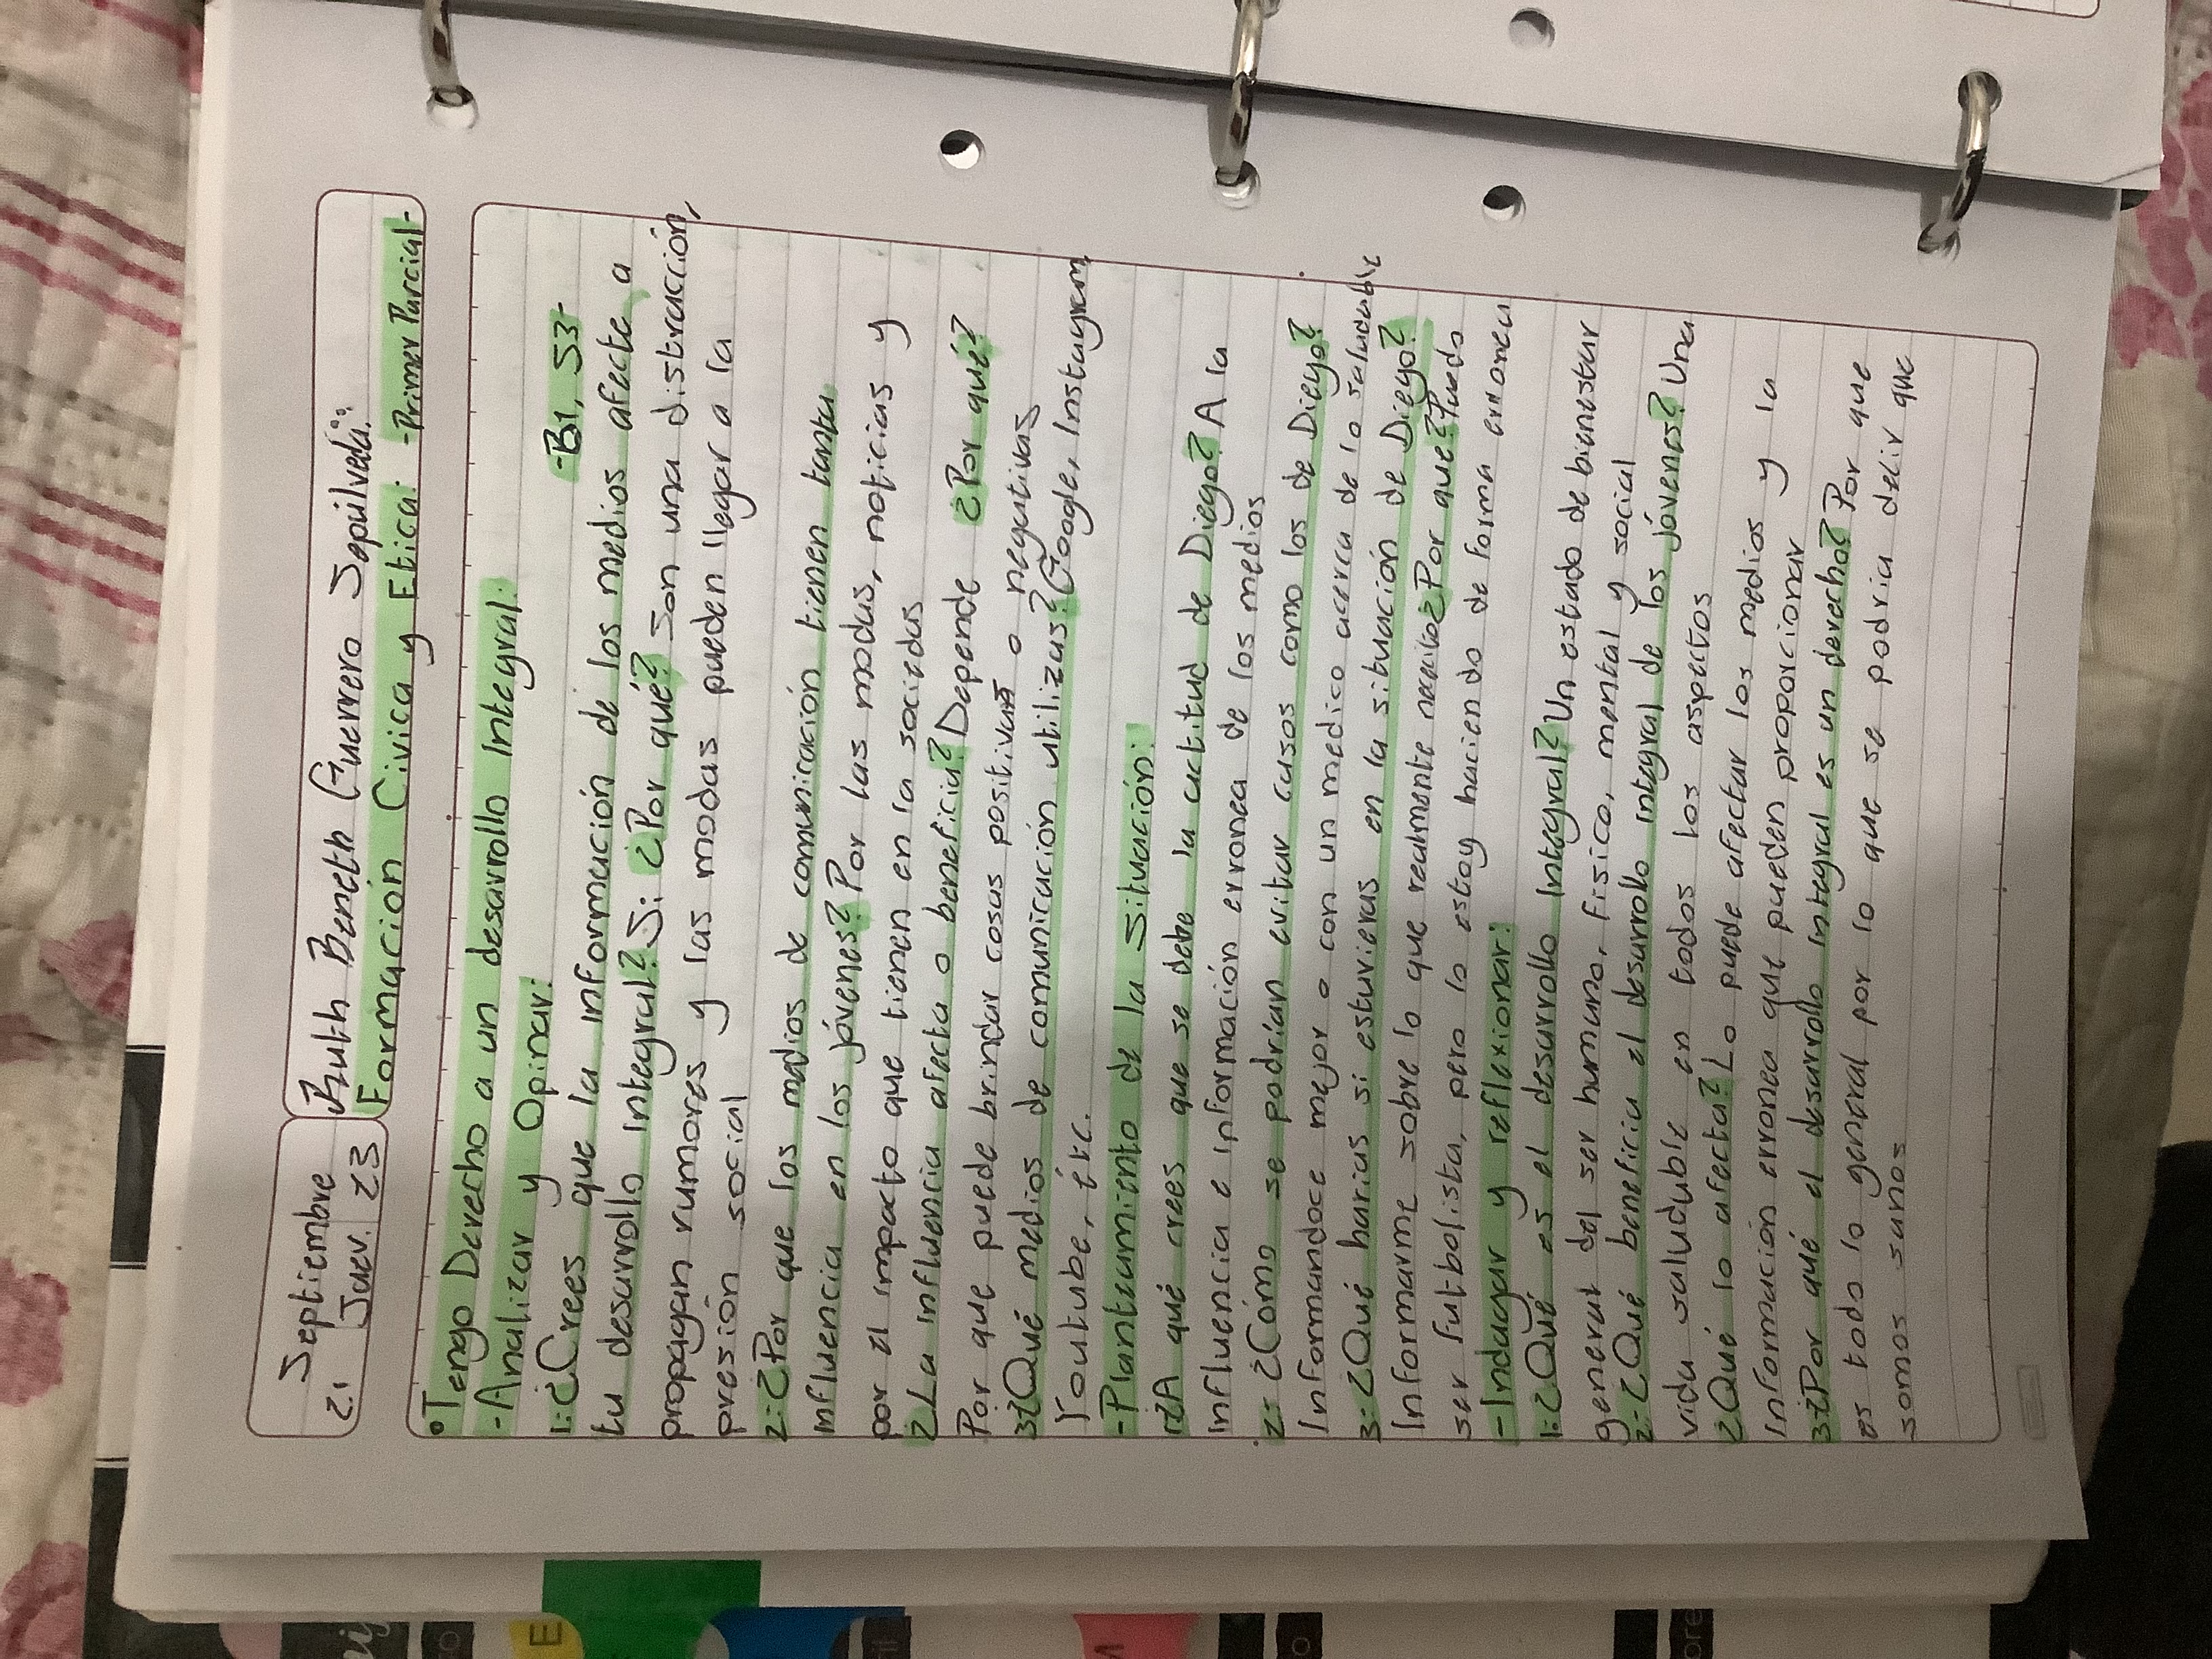 Septiembre
21 Juev. 23
Ruth Beneth Guerrero Sepúlveda:
Formación Civica y Etica: -Primer Parcial-
°Tengo Derecho a un desarrollo Integral:
-Analizar y Opinar: -B1, S3-
1: ¿Crees que la información de los medios afecte a
tu desarrollo integral? Si ¿Por qué? Son una distracción,
propagan rumores y las modas pueden llegar a la
presión social
2: ¿Por que los medios de comunicación tienen tanta
influencia en los jóvenes? Por las modas, noticias y
por el impacto que tienen en la sociedas
¿La influencia afecta o beneficia? Depende ¿Por qué?
Por que puede brindar cosas positivas o negativas
3: ¿Qué medios de comunicación utilizas? Google, Instagram
Youtube, étc.
-Planteamiento de la Situación:
1: ¿A qué crees que se debe la actitud de Diego? A la
influencia e información erronea de los medios
2: ¿Cómo se podrían evitar casos como los de Diego?
Informandoce mejor o con un medico acerca de lo saludable
3: ¿Qué harias si estuvieras en la situación de Diego?
Informarme sobre lo que realmente necito ¿Por que? Puedo
ser futbolista, pero lo estoy haciendo de forma erronea
-Indagar y reflexionar:
1: ¿Qué es el desarrollo Integral? Un estado de bienestar
general del ser humano, fisico, mental y social
2: ¿Qué beneficia el desarrollo integral de los jóvenes? Una
vida saludable en todos los aspectos
¿Qué lo afecta? Lo puede afectar los medios y la
información erronea que pueden proporcionar
3: ¿Por qué el desarrollo integral es un derecho? Por que
es todo lo general por lo que se podria delir que
somos sanos
E
M